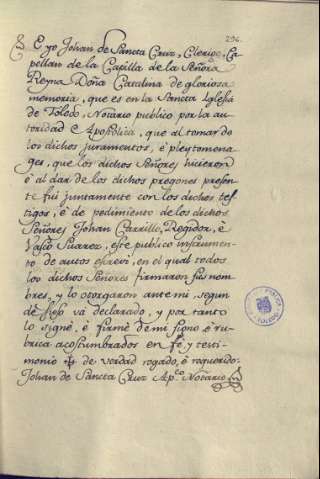 296.
E yo Johan de Sancta Cruz, Clerigo, Ca-
pellan de la Capilla de la Señora
Reyna Doña Catalina de gloriosa
memoria, que es en la Sancta Iglesia
de Toledo, Notario publico por la au-
toridad e Apostolica, que al tomar de
los dichos juramentos, é pleytomena-
ges, que los dichos Señores hicieron
é al dar de los dichos pregones presen-
te fui juntamente con los dichos tes-
tigos, é de pedimiento de los dichos
Señores Johan Carrillo, Regidor, é
Vasco Suarez, este publico instrumen-
to de autos escreví, en el qual todos
los dichos Señores firmaron sus nom-
bres, y lo otorgaron ante mi, segun
de suso vá declarado, y por tanto
lo signé, é firmé de mi signo é ru-
brica acostumbrados en fé, y testi-
monio de verdad rogado, é requerido:
Johan de Sancta Cruz Ap.co Notario